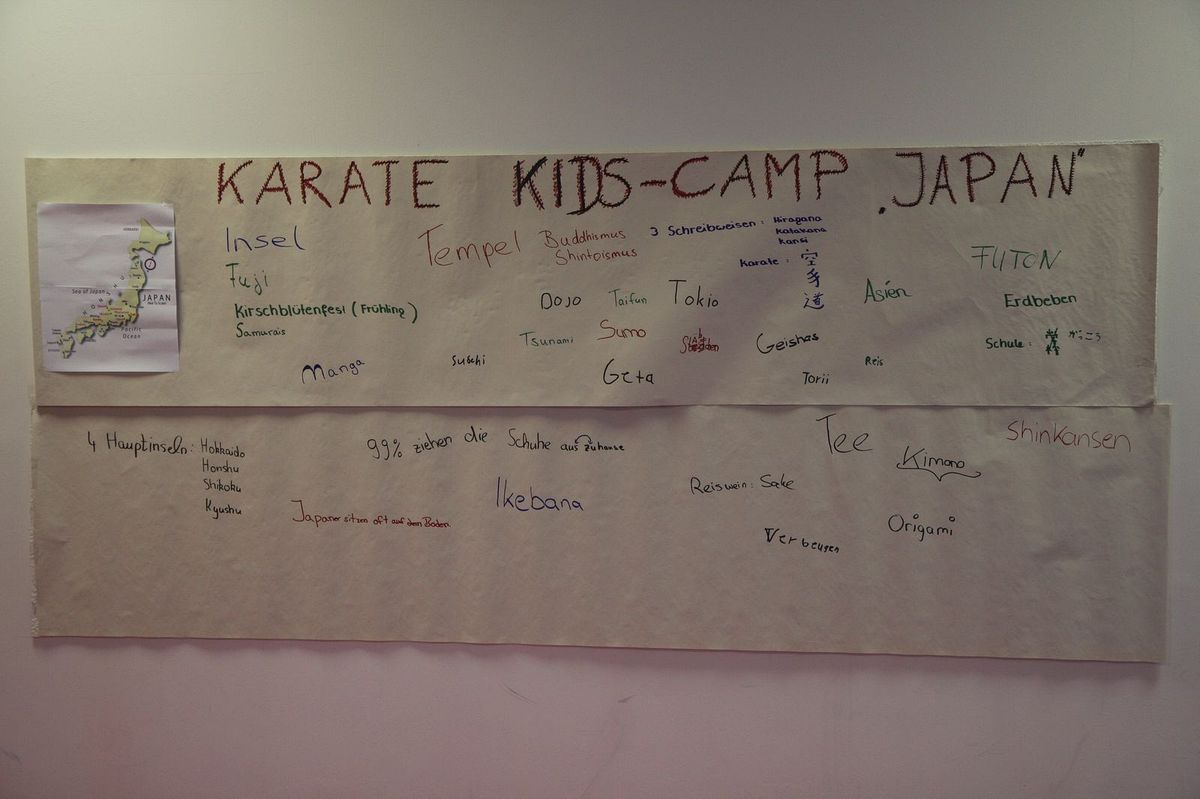 KARATE KIDS-CAMP „JAPAN"
Insel
Tempel
Buddhismus
Shintoismus
3 Schreibweisen: Hiragana
Katakana
Kansi
Karate: 空
手
道
FUTON
Fuji
Kirschblütenfest (Frühling)
Samurais
Dojo
Taifun
Tokio
Asien
Erdbeben
Tsunami
Sumo
Geishas
Schule: がっこう
Manga
Suschi
Geta
Torii
Reis
Sea of Japan
JAPAN
Pacific
Ocean
4 Hauptinseln: Hokkaido
Honshu
Shikoku
Kyushu
99% ziehen die Schuhe aus zuhause
Tee
Kimono
Shinkansen
Japaner sitzen oft auf dem Boden.
Ikebana
Reiswein: Sake
Verbeugen
Origami